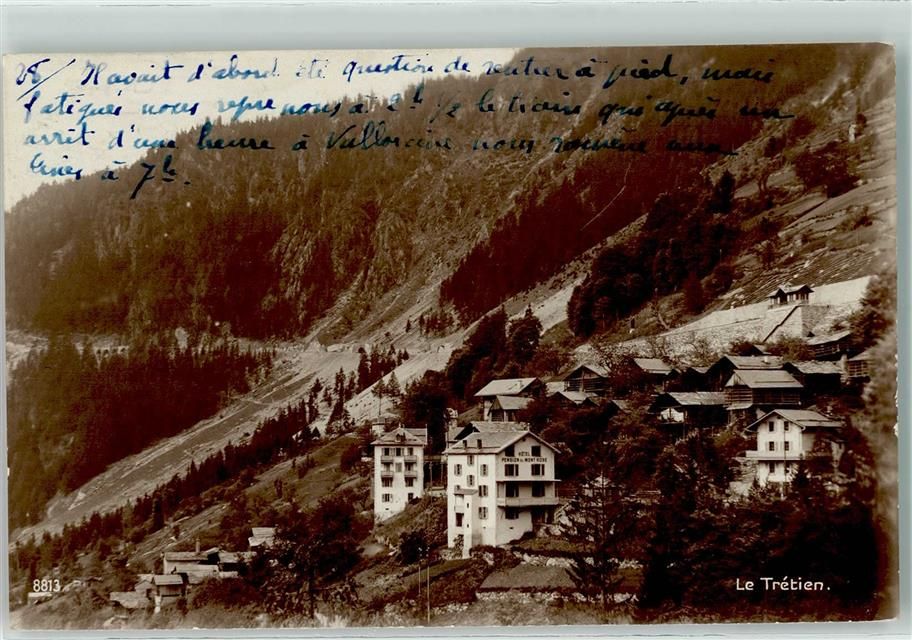 28/ Il avait d'abord été question de rentrer à pied, mais
fatigués nous reprenons à 2h 1/2 le train qui après un
arrêt d'une heure à Vallorcine nous ramène aux
à 7h.
HÔTEL
PENSION du MONT-ROSE
8813
Le Trétien.